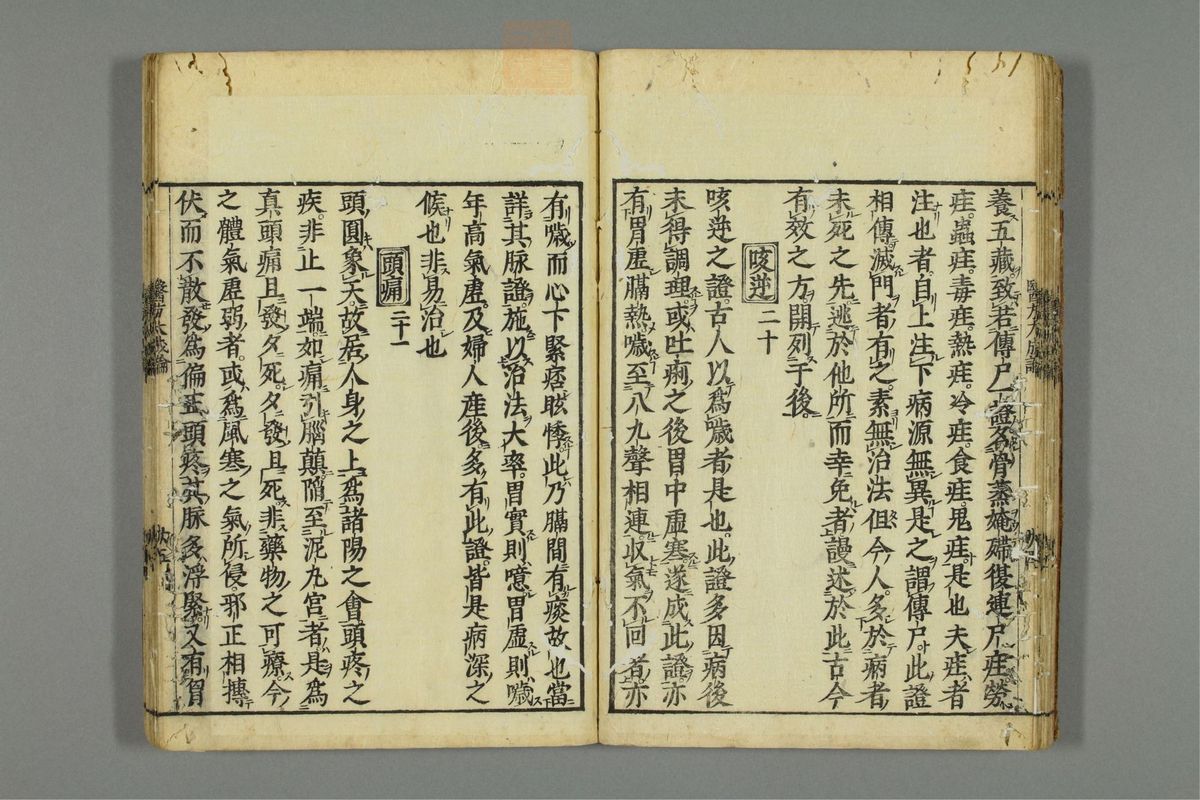 養五藏致若傳尸一證名骨蒸殗殜復連尸疰勞
疰蟲疰毒疰熱疰冷疰食疰鬼疰是也夫疰者
注也者自上注下病源無異是之謂傳尸此證
相傳滅門者有之素無治法但今人多於病者
未死之先逃於他所而幸免者謾述於此古今
有效之方開列于後
咳逆 二十
咳逆之證古人以爲噦者是也此證多因病後
未得調理或吐痢之後胃中虛寒遂成此證亦
有胃虛膈熱噦至八九聲相連収氣不回者亦
有噦而心下緊痞眩悸此乃膈間有痰故也當
詳其脉證施以治法大率胃實則噫胃虛則噦
年高氣虛及婦人産後多有此證皆是病深之
候也非易治也
頭痛 二十一
頭圓象天故居人身之上爲諸陽之會頭疼之
疾非止一端如痛引腦巔陷至泥丸宮者是爲
真頭痛旦發夕死夕發旦死非藥物之可療今
之體氣虛弱者或爲風寒之氣所侵邪正相搏
伏而不散發爲偏正頭疼其脉多浮緊又有胃